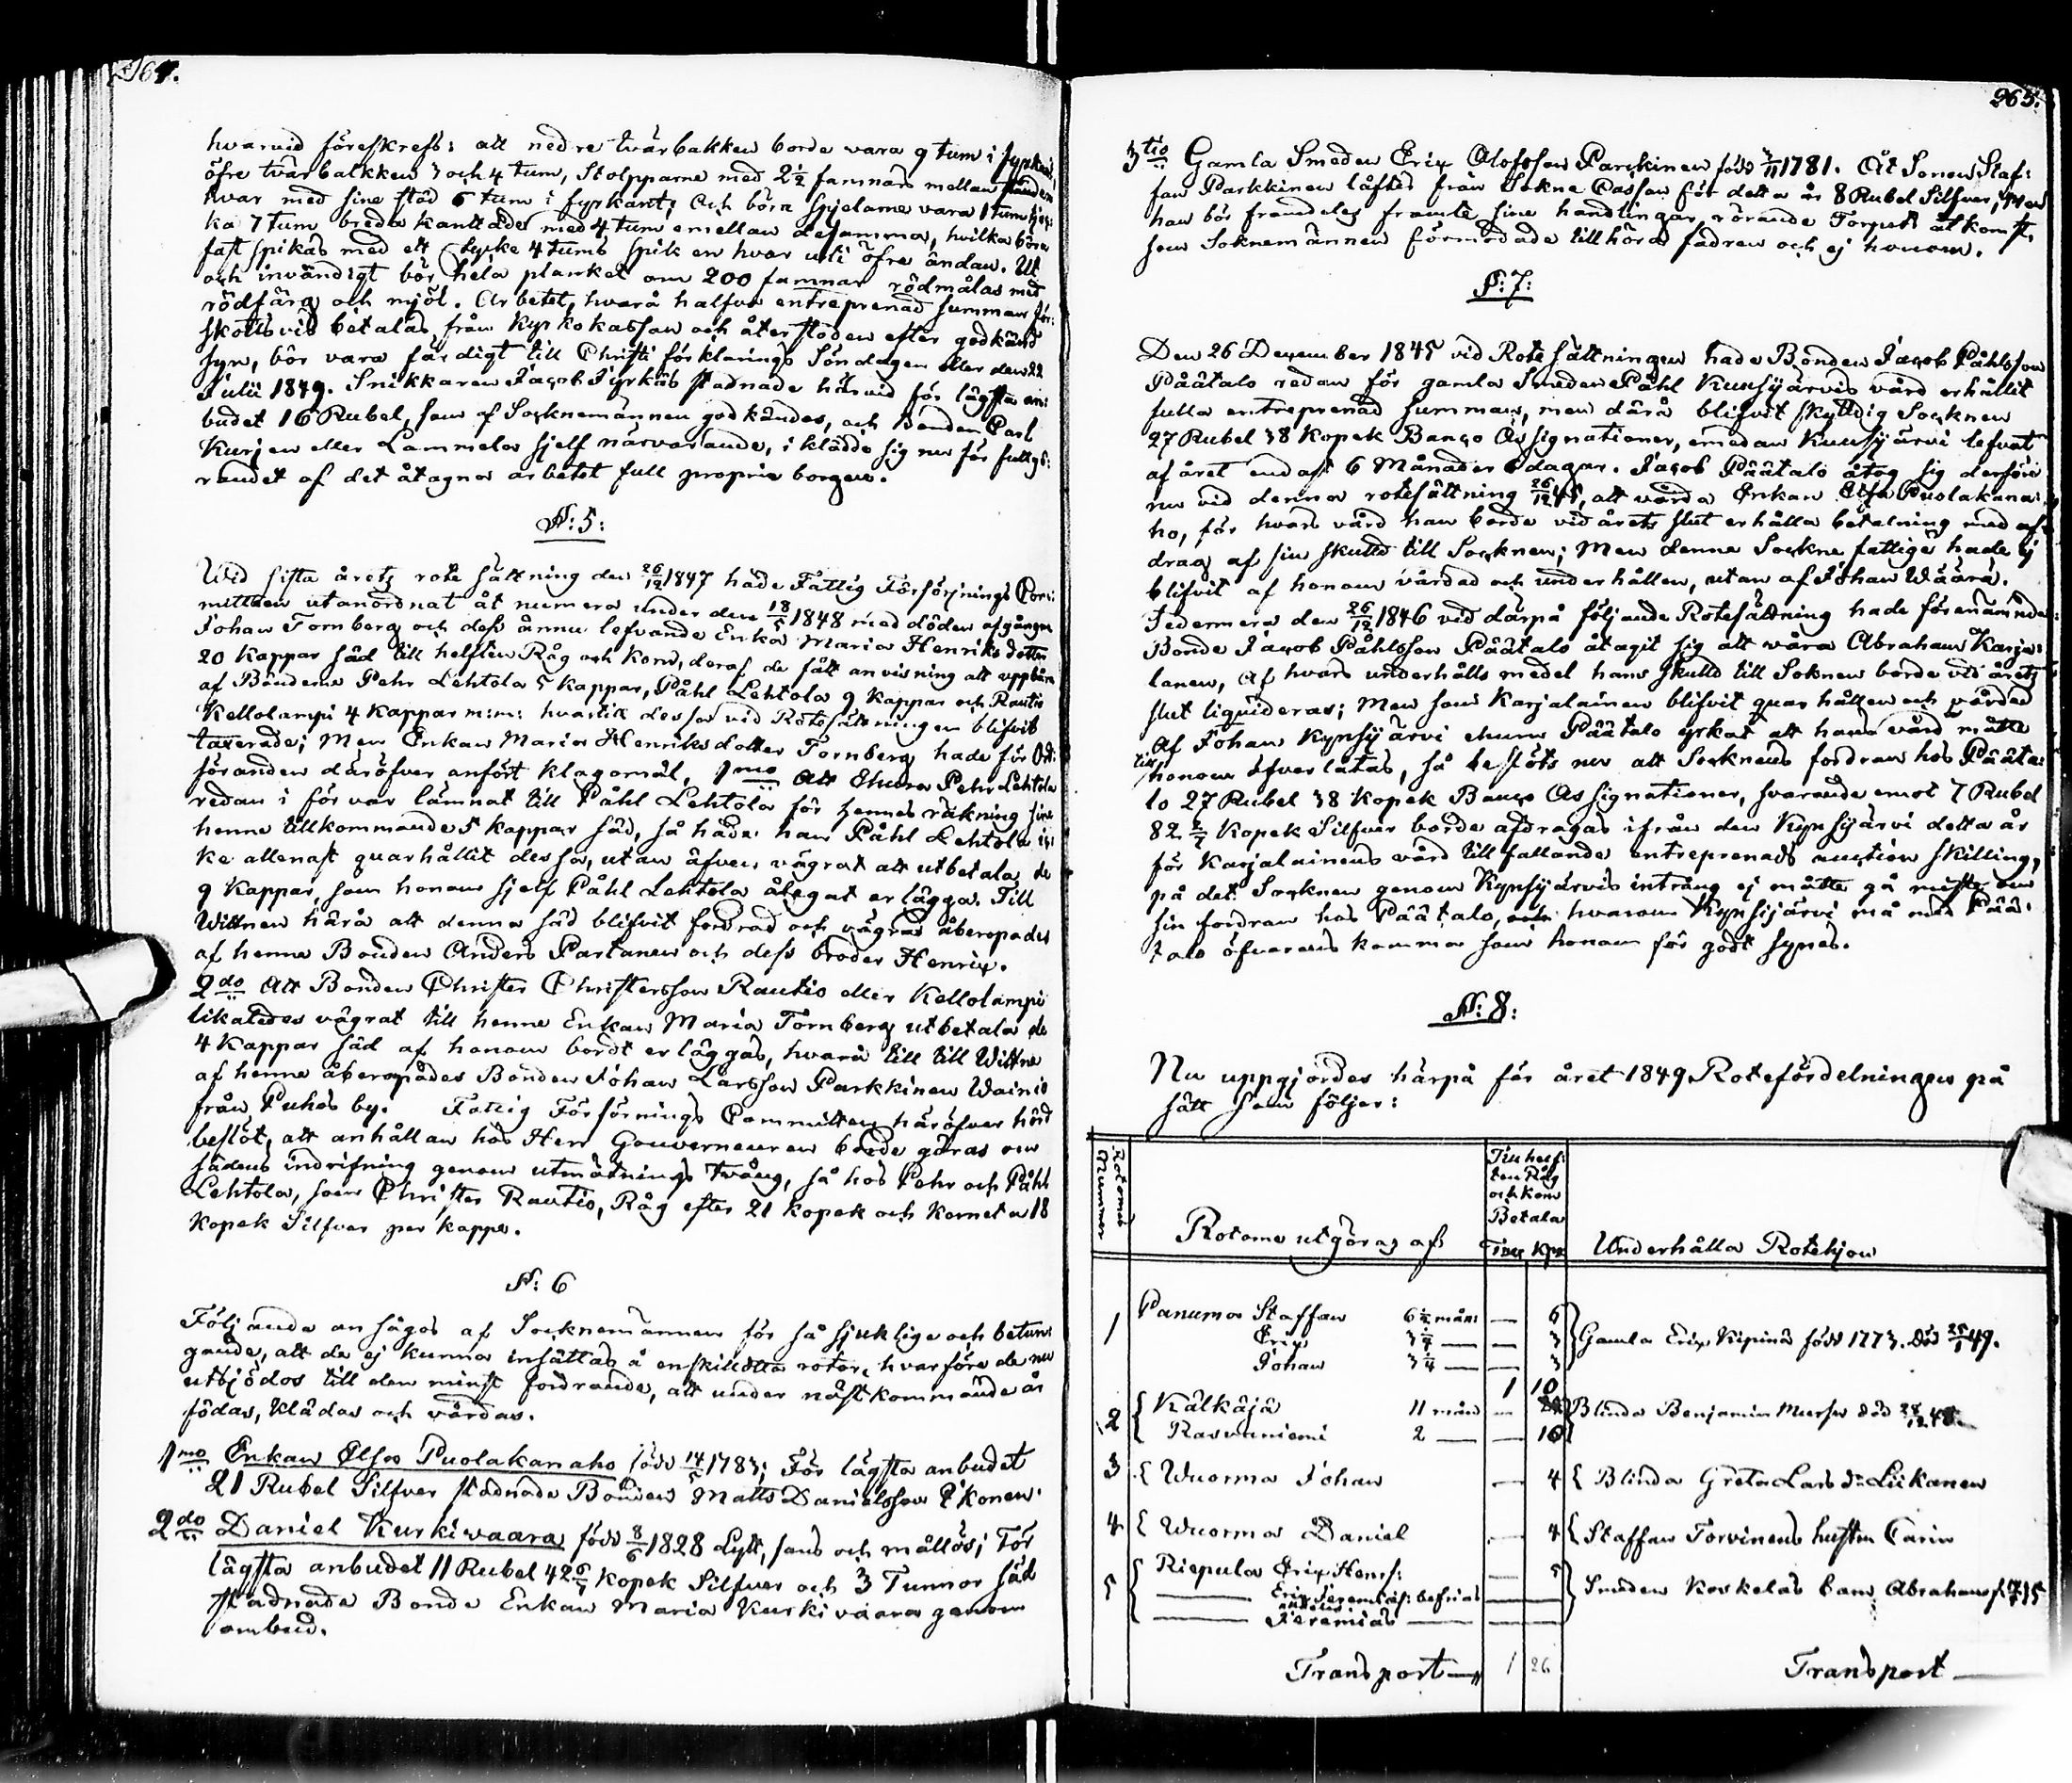 264.
hvarvid föreskrefs: att nedre tvärbalken borde vara 9 tum i fyrkant,
öfre tvärbalkken 3 och 4 tum, Stolpparne med 2½ famnars mellan
hvar med sine stöd 6 tum i fyrkant; Och böra spjelarne vara 1 tum tjoc:
ka 7 tum breda kantade med 4 tum emellan desamma, hvilka böra
fast spikas med ett stycke 4 tums spik en hvar uti öfre ändan. Ut
och invändigt bör hela planket om 200 famnar rödmålas med
rödfärg och mjöl. Arbetet, hvarå halfva entreprenad summan för:
skottsvis betalas från Kyrkokassan och återstoden efter godkänd
syn, bör vara färdigt till Christi förklarings Söndagen eller den 22
Julii 1849. Snikkaren Jacob Tyrkäs stadnade härvid för lägsta an:
budet 16 Rubel, som af Socknemännen godkändes, och Bonden Carl
Kurjen eller Lammela sjelf närvarande, i klädde sig nu för fullgö:
randet af det åtagna arbetet full proprie borgen.
§: 5:
Wid sista årets rote sättning den 26/12 1847 hade Fattig Försörjnings Com:
mitteen utanordnat åt numera under den 18/5 1848 med döden afgångne
Johan Tornberg och dess ännu lefvande Enka Maria Henriks dotter
20 Kappar säd till helften Råg och korn, deraf de fått anvisning att uppbära
af Bönderne Pehr Lehtola 5 kappar, Påhl Lehtola 9 Kappar och Rautio
Kellolampi 4 Kappar m:m: hvartill dessa vid Rotesättningen blifvit
taxerade; Men Enkan Maria Henriksdotter Tornberg hade för Ord:
föranden däröfver anfört klagomål, 1mo Att ehuru Pehr Lehtola
redan i förvar lämnat till Påhl Lehtola för hennes räkning sine
henne tillkommande 5 kappar säd, så hade han Påhl Lehtola ic:
ke allenast quarhållit dessa, utan äfven vägrat att utbetala de
9 Kappar, som honom sjelf Påhl Lehtola ålegat erlägga. Till
Wittnen härå att denna säd blifvit fordrad och vägrad åberopades
af henne Bonden Anders Partanen och dess broder Henric.
2do Att Bonden Christer Christersson Rautio eller Kellolampi
likaledes vägrat till henne Enkan Maria Tornberg utbetala de
4 Kappar säd af honom bordt erläggas, hvari till till Wittne
af henne åberopades Bonden Johan Larsson Parkkinen Wainio
från Puhos by. Fattig Försörnings Committen häröfver hörd
beslöt, att anhållan hos Herr Gouverneuren borde göras om
sädens indrifning genom utmätnings tvång, så hos Pehr och Påhl
Lehtola, som Christer Rautio, Råg efter 21 kopek och kornet a 18
kopek Silfver per kappe.
§: 6
Följande ansågos af Socknemännen för så sjuklige och betun:
gande, att de ej kunna insättas å enskildta rotor, hvarföre de nu
utbjödos till den minst fordrande, att under nästkommande år
födas, klädas och vårdas.
1mo Enkan Elsa Puolakanaho född 14/5 1783; För lägsta anbudet
21 Rubel Silfver stadnade Bonden Matts Danielsson Ikonen.
2do Daniel Kurkivaara, född 8/6 1828 Lytt, sans och mållös; För
lägsta anbudet 11 Rubel 42 6/7 Kopek Silfver och 3 Tunnor säd
stadnade Bonde Enkan Maria Kurkivaara genom
ombud.
265.
3tio Gamla Smeden Eric Olofsson Parckinen född 3/11 1781. Åt Sonen Staf:
fan Parkkinen låftes från Sokne Cassan för detta år 8 Rubel Silfver, Men
han bör framdeles framte sine handlingar rörande Torpets åtkomst,
som Soknemännen förmodade tillhöra fadren och ej honom.
§: 7:
Den 26 December 1845 vid Rotesättningen hade Bonden Jacob Påhlsson
Päätalo redan för gamla Smeden Påhl Kynsijärvis vård erhållit
fulla entreprenad summan, men därå blifvit skyldig Socknen
27 Rubel 38 Kopek Banco Assignationer, emedan Kynsijärvi lefvat
af året endast 6 Månader 6 dagar. Jacob Päätalo åtog sig derföre
nu vid denna rotesättning 26/12 45, att vårda Enkan Elsa Puolakana:
ho, för hvars vård han borde vid årets slut erhålla betalning med af:
drag af sin skulld till Socknen; Men denna Sockne fattige hade ej
blifvit af honom vårdad och underhållen, utan af Johan Wäärä.
Sedermera den 26/12 1846 vid därpå följande Rotesättning hade förenämnde
Bonde Jacob Påhlsson Päätalo åtagit sig att våra Abraham Karja:
lanen, Af hvars underhålls medel hans skulld till Soknen borde vid årets
slut liquideras; Men som Karjalainen blifvit quarhållen och vårdad
af Johan Kynsijärvi ehuru Päätalo yrkat att hans vård måtte
till honom öfverlåtas, så beslöts nu att Socknens fordran hos Pääta:
lo 27 Rubel 38 kopek Banco Assignationer, svarande emot 7 Rubel
82 2/7 Kopek Silfver borde afdragas ifrån den Kynsijärvi detta år
för Karjalainens vård tillfallande entreprenads auction skilling,
på det Socknen genom Kynsijärvis intrång ej måtte gå miste om
sin fordran hos Päätalo, hvarom Kynsijärvi må med Pää:
talo öfverens komma som honom för godt synes.
§: 8:
Nu uppgjordes härpå för året 1849 Rotefördelningen på
sätt som följer:
Rotornes Nummer
Rotorne utgöras af:
Till helf:
ten Råg
och korn
Betala
Tnr Kpr
Underhålla Rotehjon
1 Panuma Staffan 6½ mån: — 6 Gamla Eric Kipinä född 1773. död 25/1 49.
Eric 3¼ — — 3
Johan 3¼ — — 3
1 10
2 Kälkäjä 11 mån — Blinda Benjamin Mursu död 48.
Rasvaniemi 2 — — 10
3 Wuorma Johan — 4 Blinda Greta Lars dr Liikanen
4 Wuorma Daniel — 4 Staffan Torvinens hustru Carin
5 Riepula Eric Henrs: — 5 Smeden Koskelas barn Abraham
— Eric Jeremiæs: befrias —
— Jeremias —
Transport — 1 26 Transport —